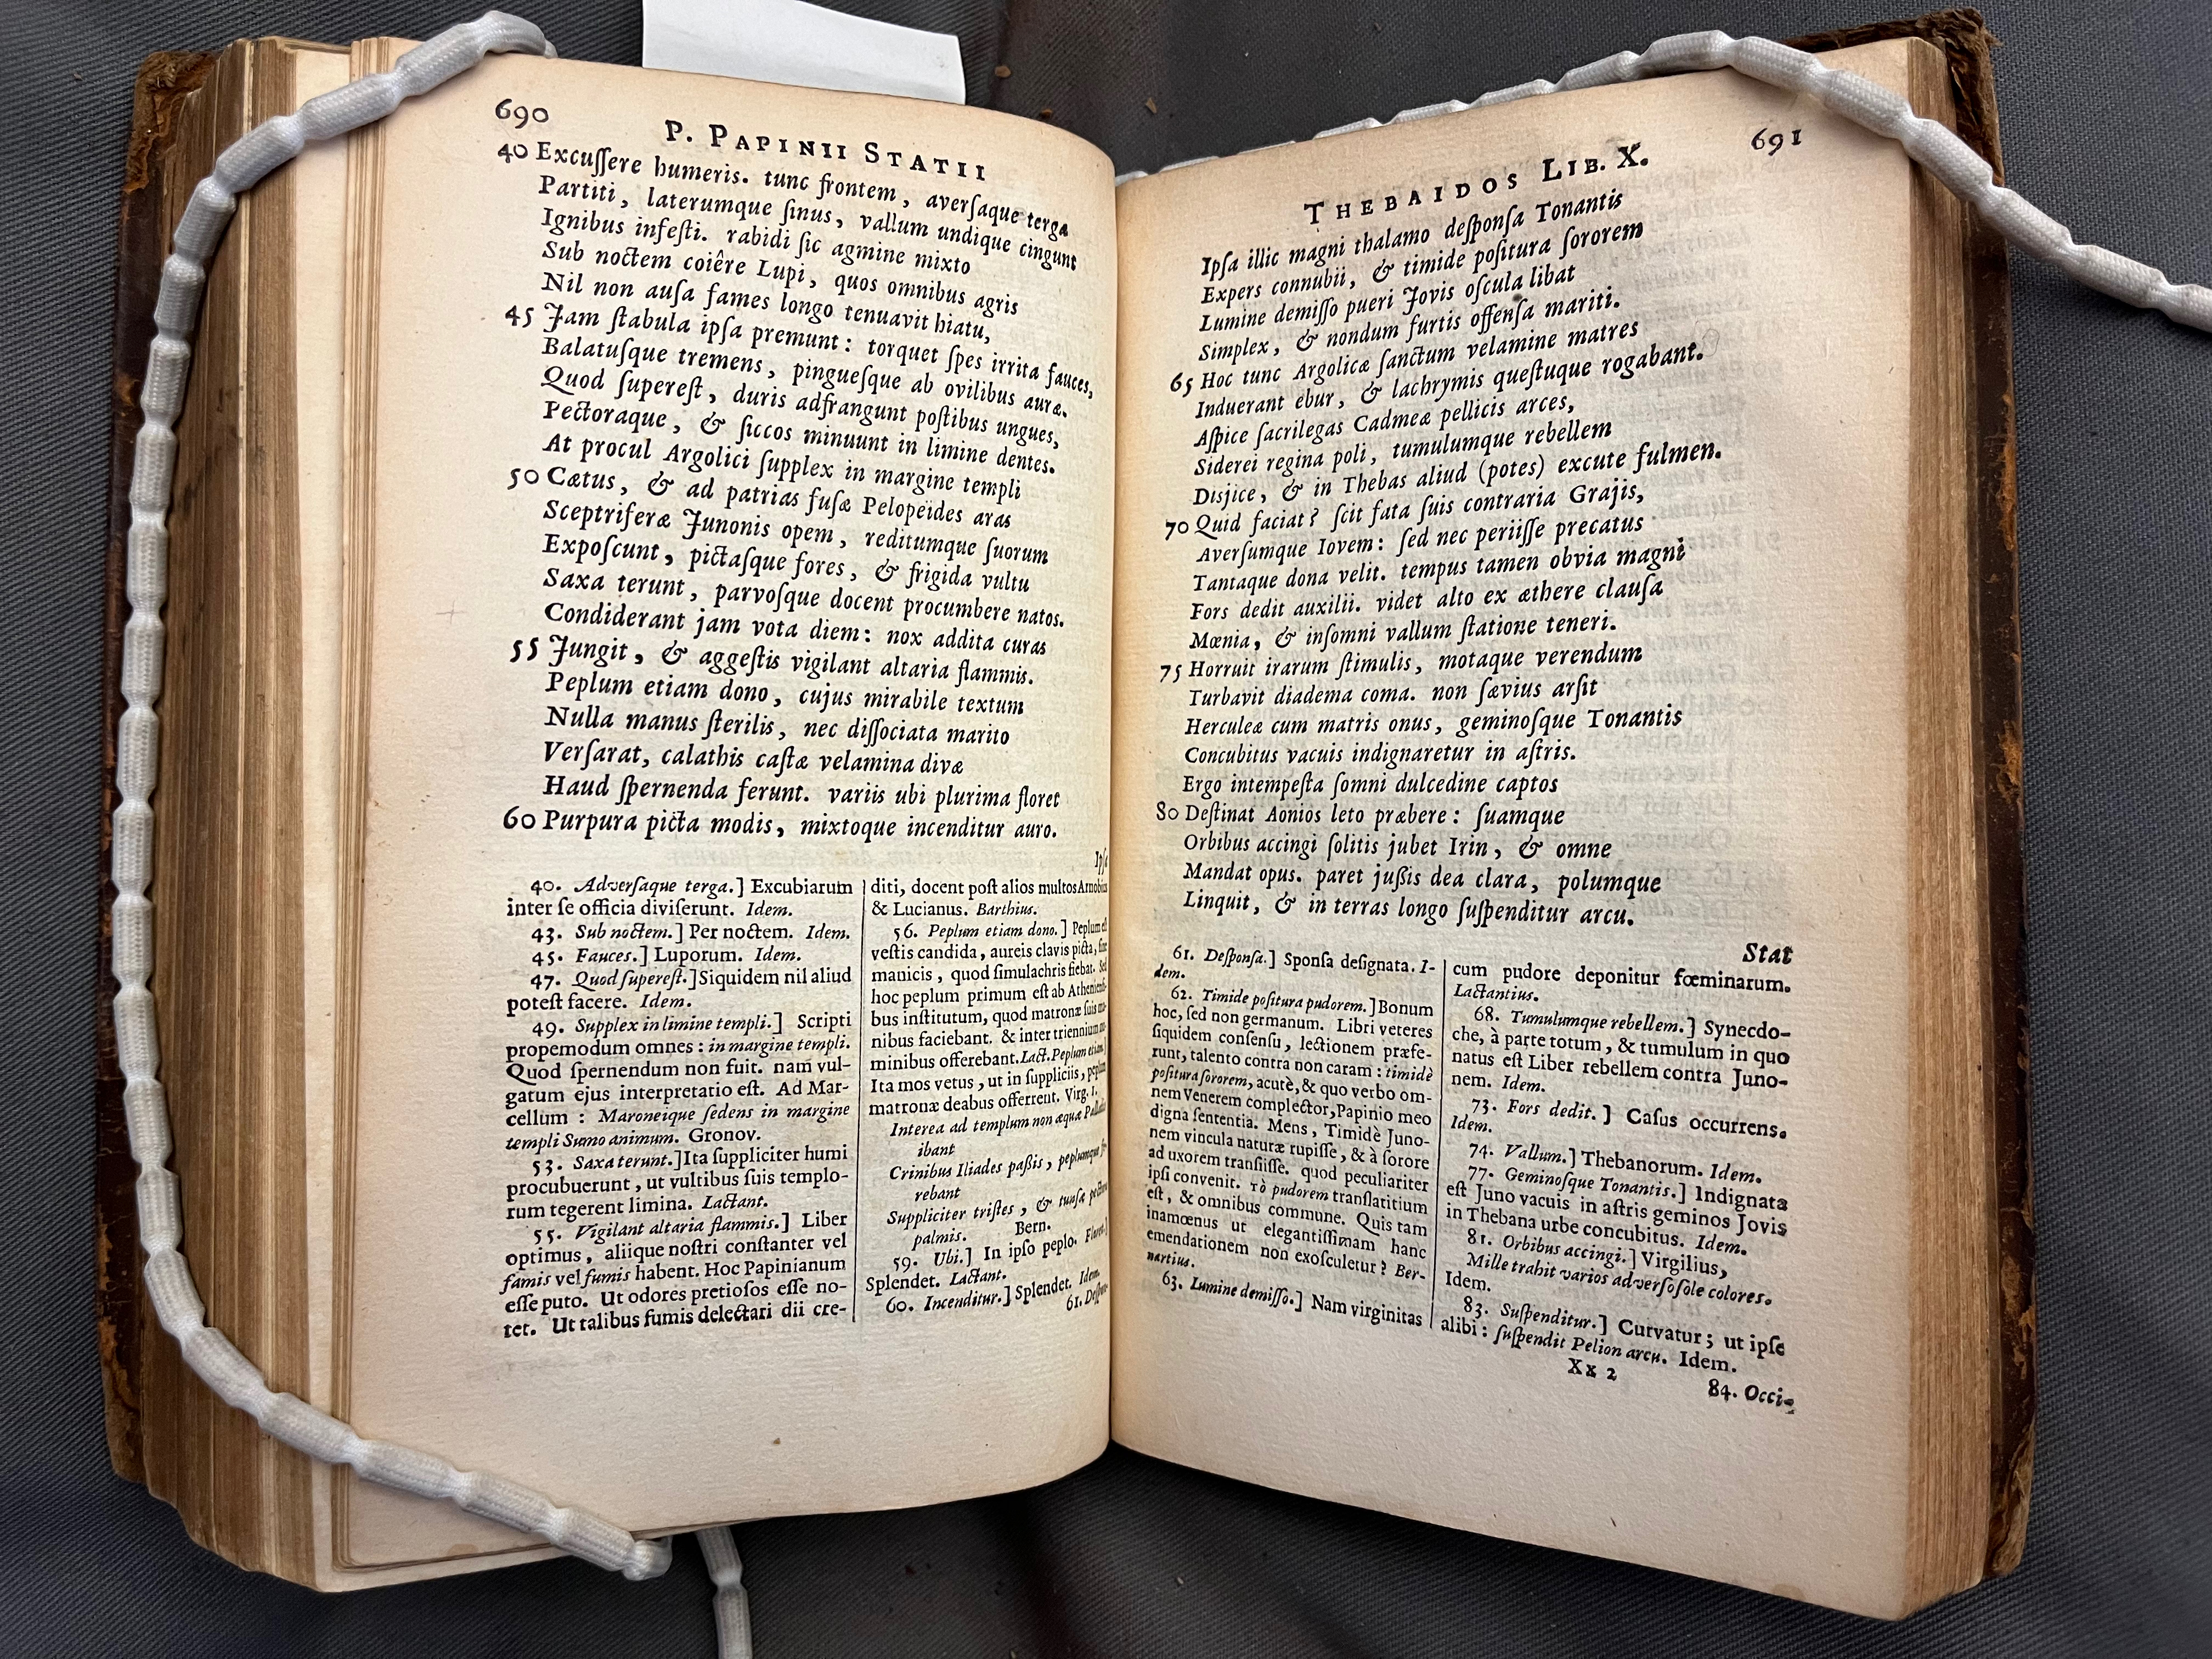 690
P. PAPINII STATII
40 Excuſſere humeris. tunc frontem, averſaque terga
Partiti, laterumque ſinus, vallum undique cingunt
Ignibus infeſti. rabidi ſic agmine mixto
Sub noctem coiêre Lupi, quos omnibus agris
Nil non auſa fames longo tenuavit hiatu,
45 Jam ſtabula ipſa premunt: torquet ſpes irrita fauces,
Balatuſque tremens, pingueſque ab ovilibus auræ.
Quod ſupereſt, duris adfrangunt poſtibus ungues,
Pectoraque, & ſiccos minuunt in limine dentes.
At procul Argolici ſupplex in margine templi
50 Cætus, & ad patrias fuſæ Pelopeïdes aras
Sceptriferæ Junonis opem, reditumque ſuorum
Expoſcunt, pictaſque fores, & frigida vultu
Saxa terunt, parvoſque docent procumbere natos.
Condiderant jam vota diem: nox addita curas
55 Jungit, & aggeſtis vigilant altaria flammis.
Peplum etiam dono, cujus mirabile textum
Nulla manus ſterilis, nec diſſociata marito
Verſarat, calathis caſtæ velamina divæ
Haud ſpernenda ferunt. variis ubi plurima floret
60 Purpura picta modis, mixtoque incenditur auro.
Ipſa
40. Adverſaque terga.] Excubiarum
inter ſe officia diviſerunt. Idem.
43. Sub noctem.] Per noctem. Idem.
45. Fauces.] Luporum. Idem.
47. Quod ſupereſt.] Siquidem nil aliud
poteſt facere. Idem.
49. Supplex in limine templi.] Scripti
propemodum omnes: in margine templi.
Quod ſpernendum non fuit. nam vul-
gatum ejus interpretatio eſt. Ad Mar-
cellum: Maroneique ſedens in margine
templi Sumo animum. Gronov.
53. Saxa terunt.] Ita ſuppliciter humi
procubuerunt, ut vultibus ſuis templo-
rum tegerent limina. Lactant.
55. Vigilant altaria flammis.] Liber
optimus, aliique noſtri conſtanter vel
famis vel fumis habent. Hoc Papinianum
eſſe puto. Ut odores pretioſos eſſe no-
tet. Ut talibus fumis delectari dii cre-
diti, docent poſt alios multos Arnobius
& Lucianus. Barthius.
56. Peplum etiam dono.] Peplum eſt
veſtis candida, aureis clavis picta, ſine
manicis, quod ſimulachris fiebat. Sed
hoc peplum primum eſt ab Athenienſi-
bus inſtitutum, quod matronæ ſuis ma-
nibus faciebant. & inter triennium
minibus offerebant. Lact. Peplum etiam.]
Ita mos vetus, ut in ſuppliciis, peplum
matronæ deabus offerrent. Virg. I.
Interea ad templum non æquæ Palladis
ibant
Crinibus Iliades paſſis, peplumque fe-
rebant
Suppliciter triſtes, & tunſæ pectora
palmis. Bern.
59. Ubi.] In ipſo peplo. Floret.]
Splendet. Lactant.
60. Incenditur.] Splendet. Idem.
61. Deſpon-
691
THEBAIDOS LIB. X.
Ipſa illic magni thalamo deſponſa Tonantis
Expers connubii, & timide poſitura ſororem
Lumine demiſſo pueri Jovis oſcula libat
Simplex, & nondum furtis offenſa mariti.
65 Hoc tunc Argolicæ ſanctum velamine matres
Induerant ebur, & lachrymis queſtuque rogabant.
Aſpice ſacrilegas Cadmeæ pellicis arces,
Siderei regina poli, tumulumque rebellem
Disjice, & in Thebas aliud (potes) excute fulmen.
70 Quid faciat? ſcit fata ſuis contraria Grajis,
Averſumque Iovem: ſed nec periiſſe precatus
Tantaque dona velit. tempus tamen obvia magni
Fors dedit auxilii. videt alto ex æthere clauſa
Mœnia, & inſomni vallum ſtatione teneri.
75 Horruit irarum ſtimulis, motaque verendum
Turbavit diadema coma. non ſævius arſit
Herculeæ cum matris onus, geminoſque Tonantis
Concubitus vacuis indignaretur in aſtris.
Ergo intempeſta ſomni dulcedine captos
80 Deſtinat Aonios leto præbere: ſuamque
Orbibus accingi ſolitis jubet Irin, & omne
Mandat opus. paret juſſis dea clara, polumque
Linquit, & in terras longo ſuſpenditur arcu.
Stat
61. Deſponſa.] Sponſa deſignata. I-
dem.
62. Timide poſitura pudorem.] Bonum
hoc, ſed non germanum. Libri veteres
ſiquidem conſenſu, lectionem præfe-
runt, talento contra non caram: timidè
poſitura ſororem, acutè, & quo verbo om-
nem Venerem complector, Papinio meo
digna ſententia. Mens, Timidè Juno-
nem vincula naturæ rupiſſe, & à ſorore
ad uxorem tranſiiſſe. quod peculiariter
ipſi convenit. τὸ pudorem tranſlatitium
eſt, & omnibus commune. Quis tam
inamœnus ut elegantiſſimam hanc
emendationem non exoſculetur? Ber-
nartius.
63. Lumine demiſſo.] Nam virginitas
cum pudore deponitur fœminarum.
Lactantius.
68. Tumulumque rebellem.] Synecdo-
che, à parte totum, & tumulum in quo
natus eſt Liber rebellem contra Juno-
nem. Idem.
73. Fors dedit.] Caſus occurrens.
Idem.
74. Vallum.] Thebanorum. Idem.
77. Geminoſque Tonantis.] Indignata
eſt Juno vacuis in aſtris geminos Jovis
in Thebana urbe concubitus. Idem.
81. Orbibus accingi.] Virgilius,
Mille trahit varios adverſo ſole colores.
Idem.
83. Suſpenditur.] Curvatur; ut ipſe
alibi: ſuſpendit Pelion arcu. Idem.
Xx 2
84. Occi-